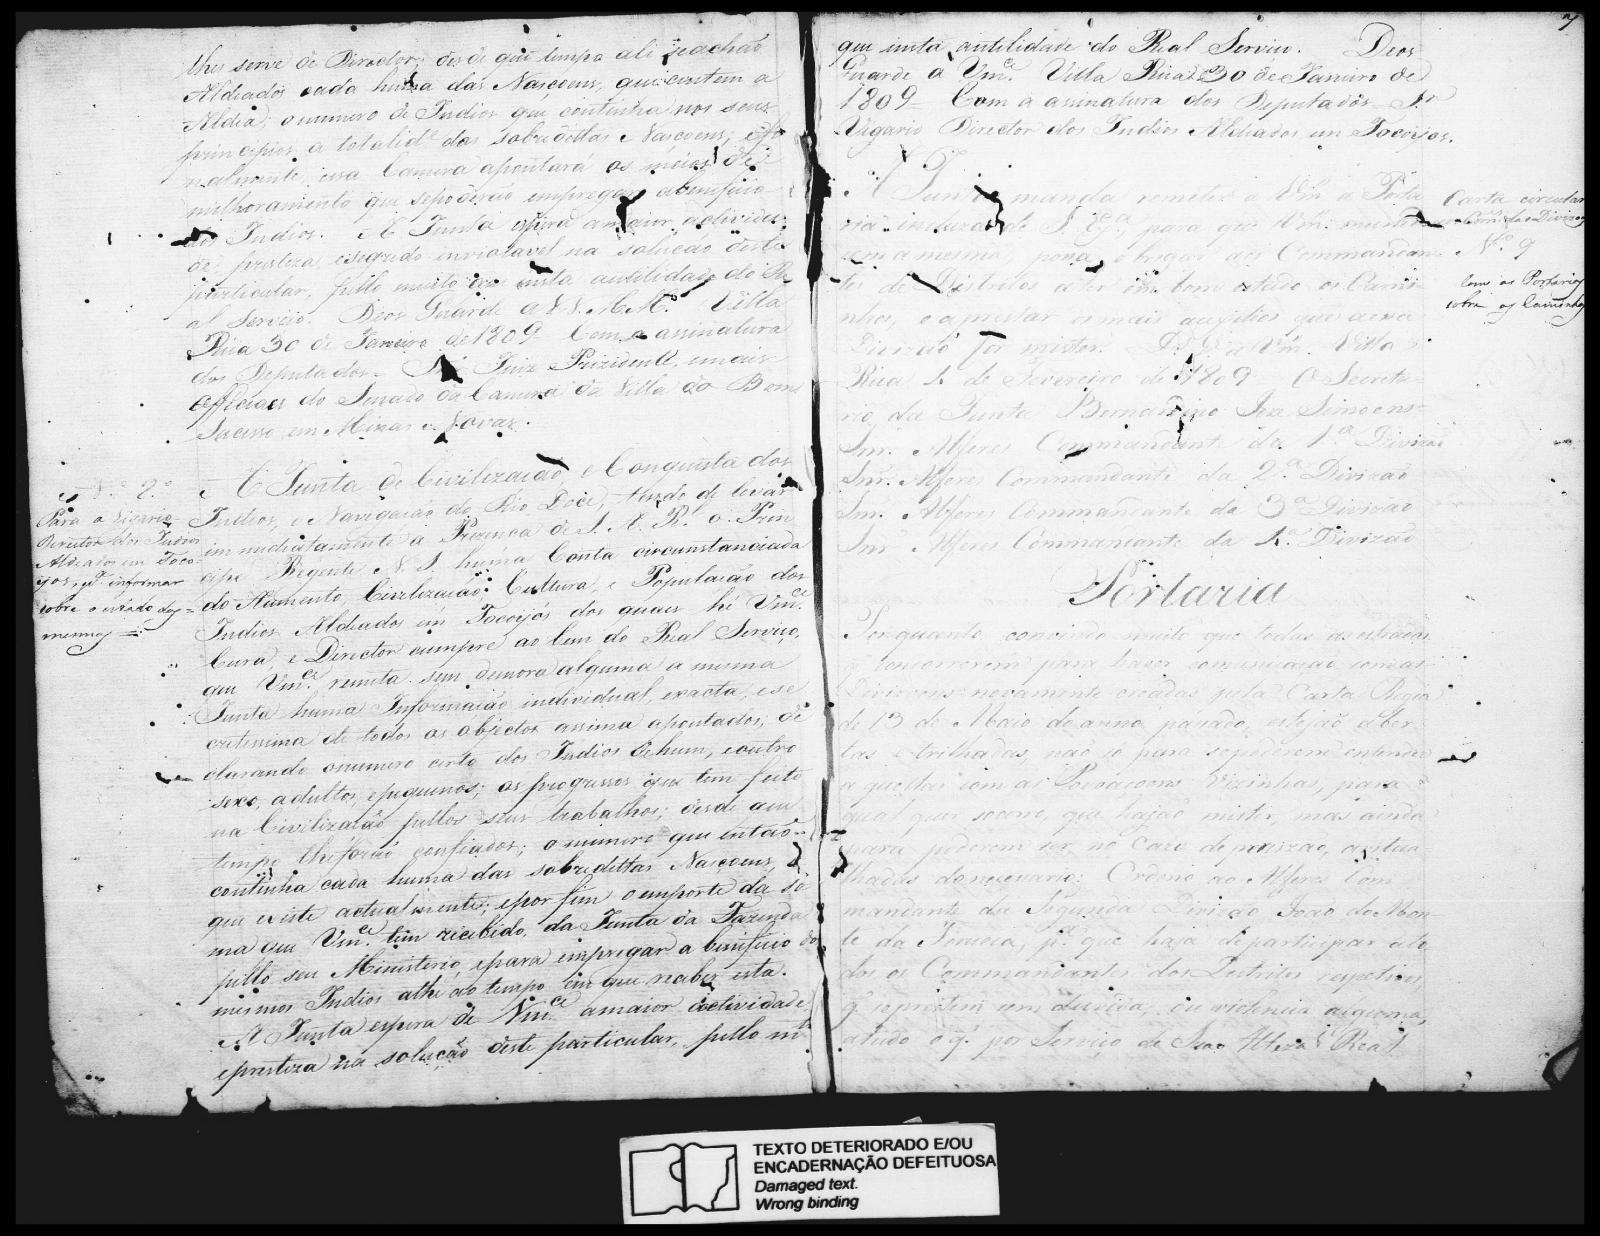 lhes serve de Director; desde que tempo ali se achão
Aldeados cada huma das Nascoens, que contem a
Aldêa; o numero de Indios que continha nos seus
principios a totalid.e das sobreditas Nascoens; e fi-
nalmente essa Camera apontará os meios de
milhoramento que se poderão empregar a beneficio
dos Indios. A Junta espera a maior actividade
de, presteza e segredo inviolavel na solucão deste
particular, pello muito que insta a utilidade do Re-
al Serviço. Deos Guarde a V.V. M.M.es Villa
Rica 30 de Janeiro de 1809 Com a assinatura
dos Deputados = Juiz Prezidente, e mais
Officiaes do Senado da Camera da Villa do Bom
Sucesso em Minas Novas.
N.º 2.º
Para o Vigario
Director dos Indios
Aldeados em Toco-
yos, p.a informar
sobre o estado dos
mesmos =
A Junta de Civilização, e Conquista dos
Indios, e Navegação do Rio Doce, tendo de levar
immediatamente a Prezença de S. A. R. o Prin
cipe Regente N. S. huma Conta circunstanciada
do Aumento, Civilização, Cultura, e População dos
Indios Aldeados em Tocoyós dos quaes hé Vm.ce
Cura, e Director cumpre ao bem do Real Serviço,
que Vm.ce remeta sem demora alguma a mesma
Junta huma Informaião individual, exacta, e se
cretissima de todos os objectos assima apontados; de
clarando o numero certo dos Indios de hum, e outro
sexo, adultos, e pequenos; os progressos que tem feito
na Civilização pellos seus trabalhos; desde que
tempo lhe forão confiados; o numero que então
continha cada huma das sobreditas Nascoens, e
que existe actualmente; e por fim o emporte da so
ma que Vm.ce tem recebido, da Junta da Fazenda
pello seu Ministerio, e para empregar a beneficio do
mesmos Indios athe ao tempo em que receber esta.
A Junta espera de Vm.ce a maior actividade
e presteza na solucão deste particular, pello m.to
que insta a utilidade do Real Serviço. Deos
Guarde a Vm.ce Villa Rica 30 de Janeiro de
1809 Com a assinatura dos Deputados = Sr
Vigario Director dos Indios Aldeados em Tocoyos.
Carta circular
Com.de da Divizoens
N.º 9
Com as Portarias
sobre os Caminhos
A Junta manda remeter a Vm. a Porta
ria incluza de S. Ex.a, para que Vm. munido
com a mesma, possa obrigar aos Commandan
tes de Districtos a ter em bom estado os Cami-
nhos, e a prestar os mais auxilios que a essa
Divizão for mister. D. G. a Vm. Villa
Rica 1 de Fevereiro de 1809 O Secreta-
rio da Junta Bernardino Joze Simoens =
Snr. Alferes Commandante da 1.a Divizão
Snr. Alferes Commandante da 2.a Divizão
Snr. Alferes Commandante da 3.a Divizão
Snr. Alferes Commandante da 4.a Divizão
Portaria
Porquanto, convindo muito que todas as estradas
q. concorrerem para haver comunicação com as
Divizoens novamente creadas pela Carta Regia
de 13 de Maio do anno passado, estejão aber-
tas e trilhadas, não só para se poderem entender
aquellas com as Povoaçoens vizinhas, para
qualquer socorro, que hajão mister, mas ainda
para poderem ser no Cazo de
necessario; Ordeno ao Alferes Com
mandante da Segunda Divizão João do Mon-
te da Fonseca, p.a que haja de participar a to
dos os Commandantes dos Destritos respectivos,
q. se prestem sem duvida, ou violencia alguma,
a tudo o q. por Serviço de Sua Alteza Real
TEXTO DETERIORADO E/OU
ENCADERNAÇÃO DEFEITUOSA
Damaged text.
Wrong binding